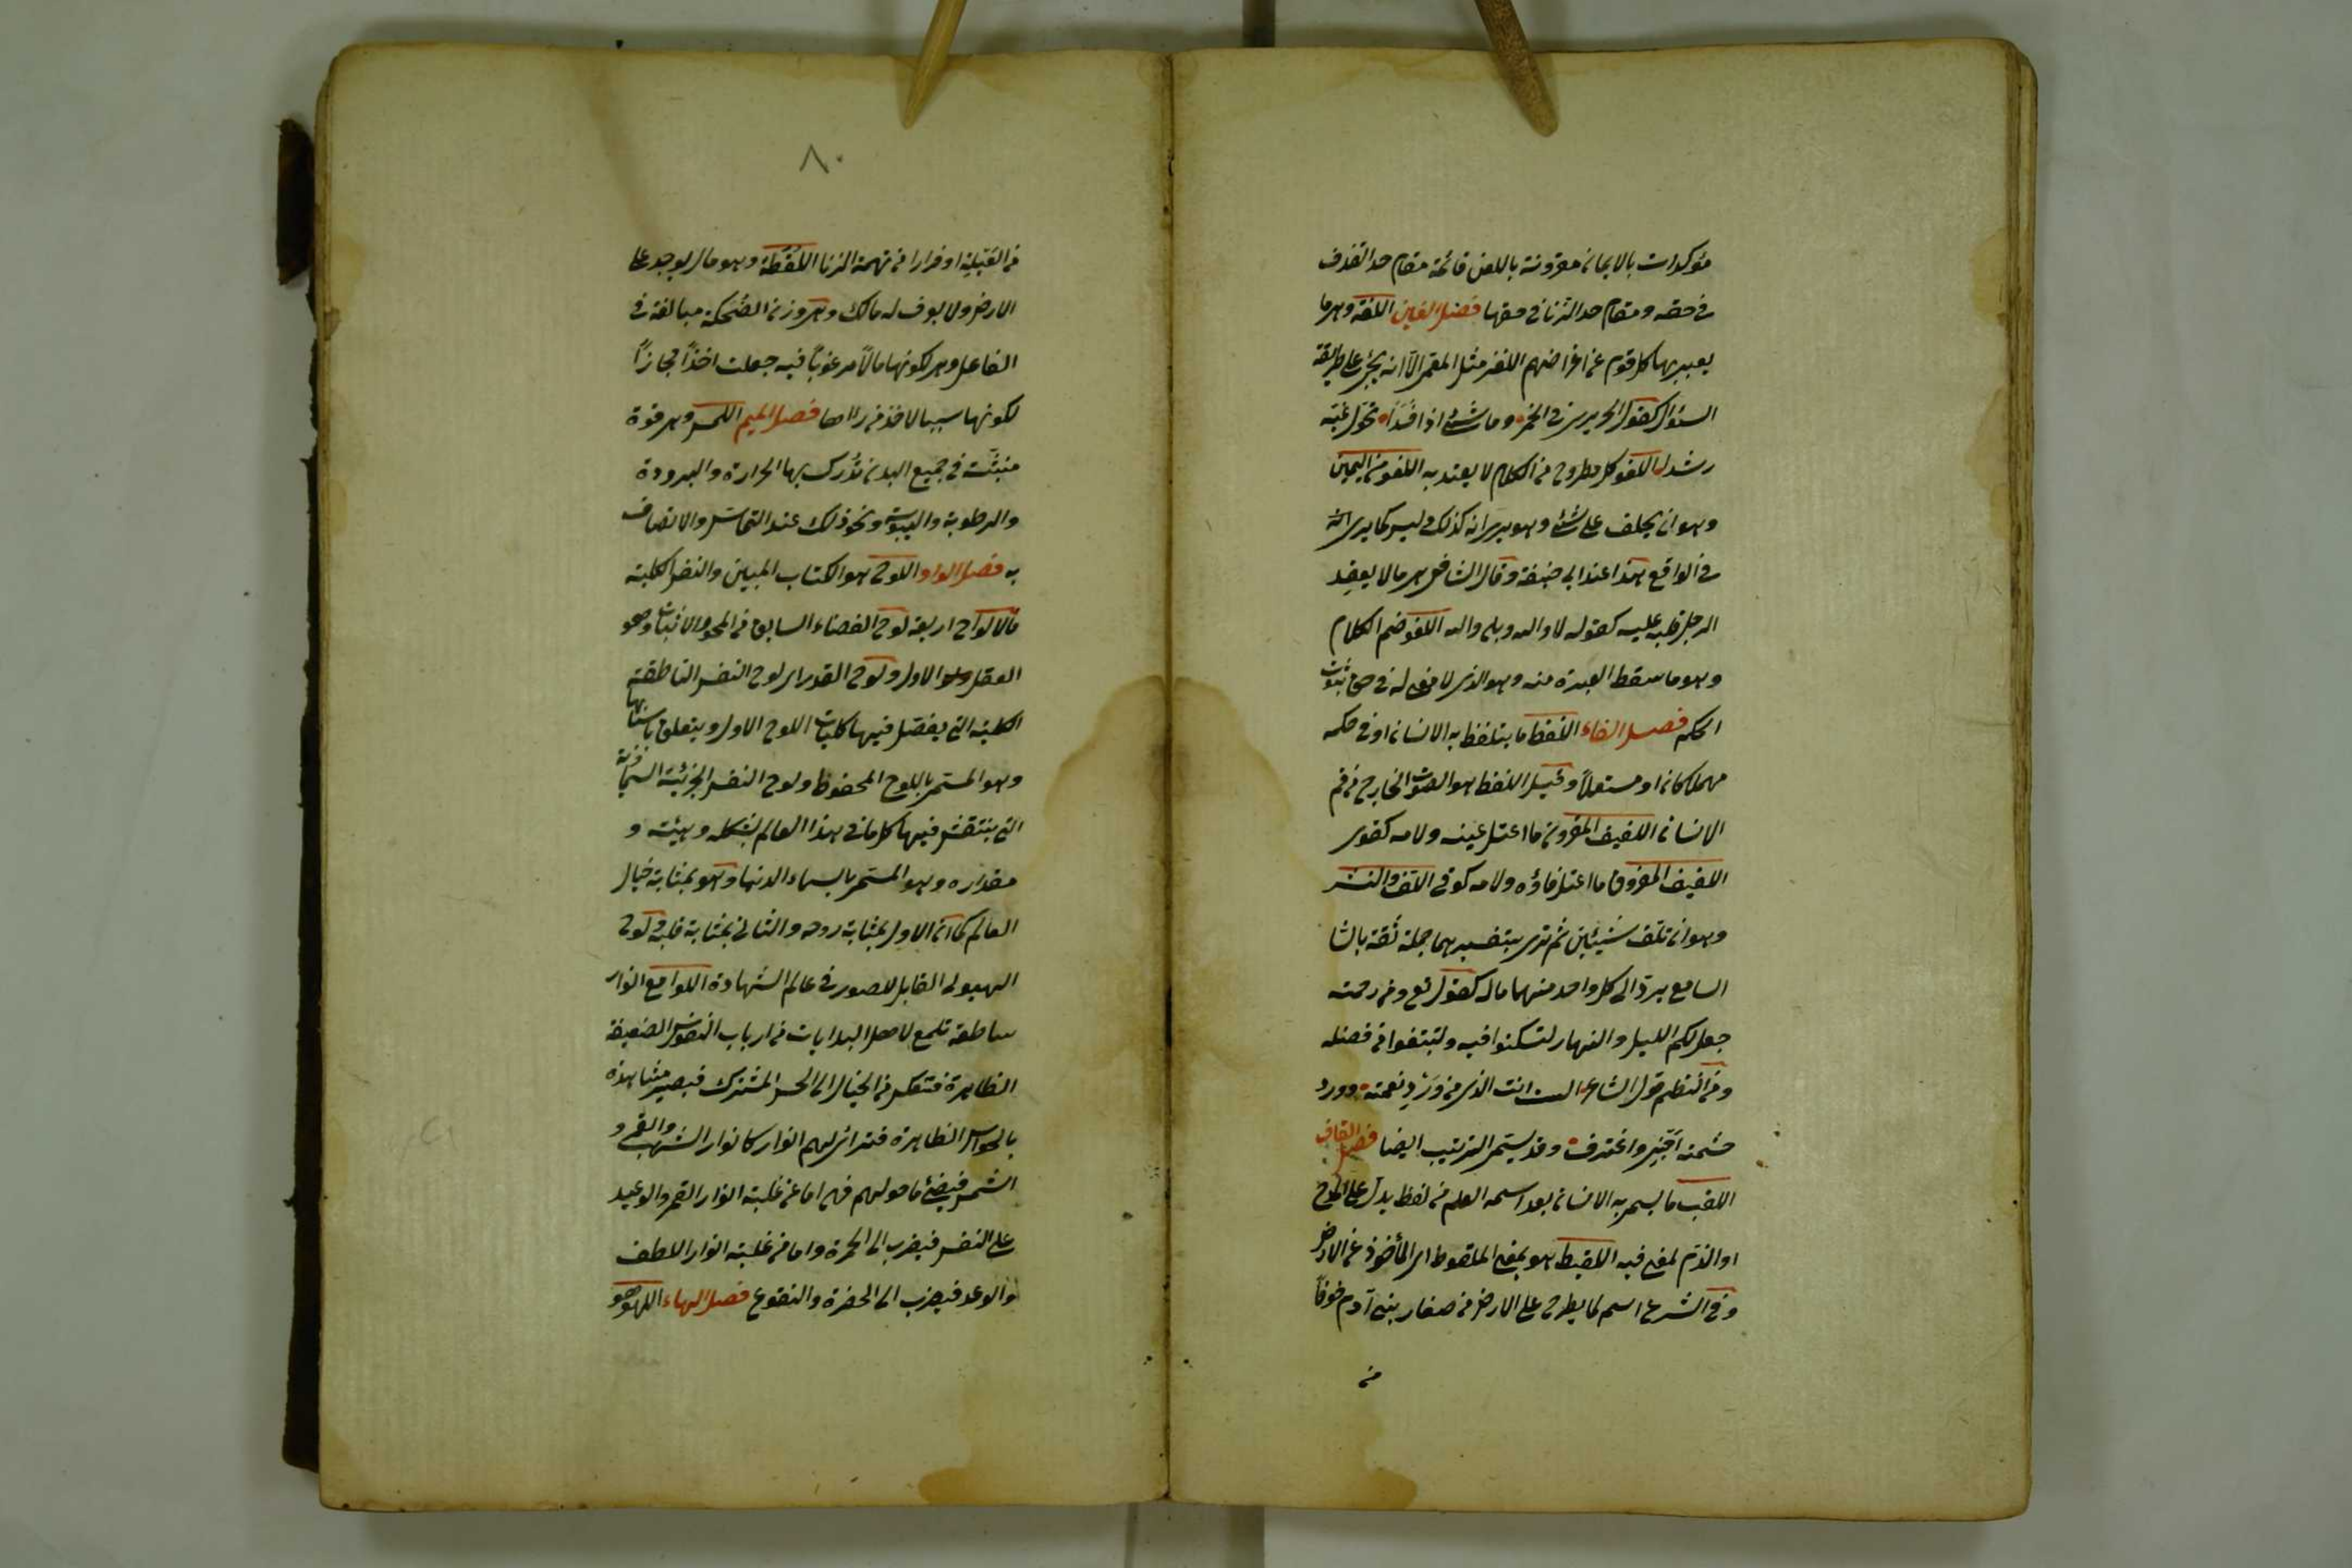 مؤكدات بالايمان مقرونة باللعن قائمة مقام حد القذف
في حقه ومقام حد الزنا في حقها فصل الغين اللغة وهو ما
يعبر بها كل قوم عن اغراضهم اللغز مثل المعمى الا انه يجئ على طريقة
السؤال كقول الحريري في الخمر وما شئ اذا فسدا تحول غيه
رشدا اللغو كل مطروح من الكلام لا يعتد به اللغو من اليمين
وهو ان يحلف على شئ وهو يرى انه كذلك وليس كما يرى انه
في الواقع هذا عند ابي حنيفة وقال الشافعي هو ما لا يعقد
الرجل قلبه عليه كقوله لا والله وبلى والله اللغو ضم الكلام
وهو ما سقط العبرة منه وهو الذي لا معنى له في حق ثبوت
الحكم فصل الفاء اللفظ ما يتلفظ به الانسان او في حكمه
مهملا كان او مستعملا وقيل اللفظ هو الصوت الخارج من فم
الانسان اللفيف المقرون ما اعتل عينه ولامه كقوى
اللفيف المفروق ما اعتل فاؤه ولامه كوقى اللف والنشر
وهو ان تلف شيئين ثم ترى بتفسيرهما جملة ثقة بالشا
السامع يرد الى كل واحد منهما ماله كقوله تع ومن رحمته
جعل لكم الليل والنهار لتسكنوا فيه ولتبتغوا من فضله
ومن النظم قول الشاعر الست انت الذي من ورد نعمته وورد
حشمته اجني واغترف وقد يسمى الترتيب ايضا فصل القاف
اللقب ما يسمى به الانسان بعد اسمه العلم من لفظ يدل على المدح
او الذم لمعنى فيه اللقيط هو بمعنى الملقوط اى المأخوذ من الارض
وفي الشرع اسم لما يطرح على الارض من صغار بني آدم خوفا
من
٨٠
من القبيلة او فرارا من تهمة الزنا اللقطة وهو مال يوجد على
الارض ولا يوف له مالك وهي وزن الضحكة مبالغة في
الفاعل وهي لكونها مالا مرغوبا فيه جعلت اخذا مجازا
لكونها سببا لاخذ من رءاها فصل الميم اللمس وهي قوة
منبثة في جميع البدن تدرك بها الحرارة والبرودة
والرطوبة واليبوسة ونحو ذلك عند التماس والاتصاف
به فصل الواو اللوح هو الكتاب المبين والنفس الكلية
فالالواح اربعة لوح القضاء السابق من المحو والاثبات وهو
العقل الاول ولوح القدر اى لوح النفس الناطقة
الكلية التي يفصل فيها كليات اللوح الاول ويتعلق باسبابها
وهو المسمى باللوح المحفوظ ولوح النفس الجزئية السماوية
التي ينتقش فيها كل ما في هذا العالم بشكله وهيئته و
مقداره وهو المسمى بالسماء الدنيا وهو بمثابة خيال
العالم كما ان الاول بمثابة روحه والثاني بمثابة قلبه ولوح
الهيولى القابل للصور في عالم الشهادة اللوامع انوار
ساطعة تلمع لاهل البدايات من ارباب النفوس الضعيفة
الظاهرة فتنعكس من الخيال الى الحس المشترك فيصير مشاهدة
بالحواس الظاهرة فتتراءى لهم انوار كانوار الشهب والقمر و
الشمس فيضئ ما حولهم فهي اما عن غلبة انوار القهر والوعيد
على النفس فيضرب الى الحمرة واما من غلبة انوار اللطف
والوعد فيضرب الى الخضرة والنقوع فصل الهاء اللهو هو